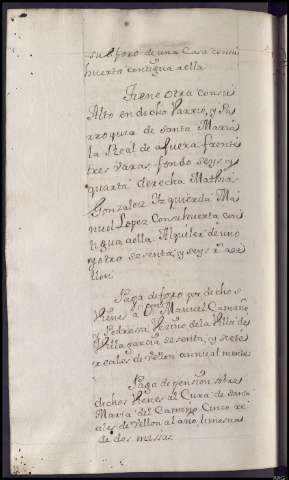 subforo de una Casa consu
huerta contigua aella
Tiene otra consu
Alto en dicho Varrio, y Pa
rroquia de santa Maria
la Real de afuera, frente
tres varas, fondo seys, y
quarta derecha Mathias
Gonzalez Izquierda Ma
nuel Lopez Consu huerta con
tigua aella Alquiler de uno
y otro sesenta, y seys rs de ve
llon
Paga de foro por dichos
Vienes a Dn Manuel Camaño
y Pedrossa Vecino dela Villa de
Villagarcia sesenta, y siete
reales de vellon annualmente
Paga de pension sobre
dichos vienes al Cura de Santa
Maria del Camino Cinco re
ales de vellon al año, limosna
de dos missas